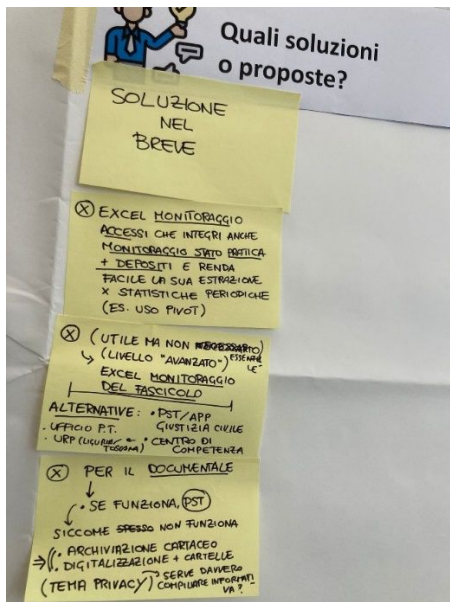 Quali soluzioni
o proposte?
SOLUZIONE
NEL
BREVE
X EXCEL MONITORAGGIO
ACCESSI CHE INTEGRI ANCHE
MONITORAGGIO STATO PRATICA
+ DEPOSITI E RENDA
FACILE LA SUA ESTRAZIONE
X STATISTICHE PERIODICHE
(ES. USO PIVOT)
X (UTILE MA NON NECESSARIO)
ESSENZIALE
↳ (LIVELLO "AVANZATO")
EXCEL MONITORAGGIO
DEL FASCICOLO
ALTERNATIVE: • PST/APP
GIUSTIZIA CIVILE
· UFFICIO P.T.
· URP (LIGURIA/TOSCANA) • CENTRO DI
COMPETENZA
X PER IL DOCUMENTALE
↓
• SE FUNZIONA, PST
SICCOME SPESSO NON FUNZIONA
⇒ • ARCHIVIAZIONE CARTACEO
• DIGITALIZZAZIONE + CARTELLE
(TEMA PRIVACY) → SERVE DAVVERO
COMPILARE INFORMATIVA?